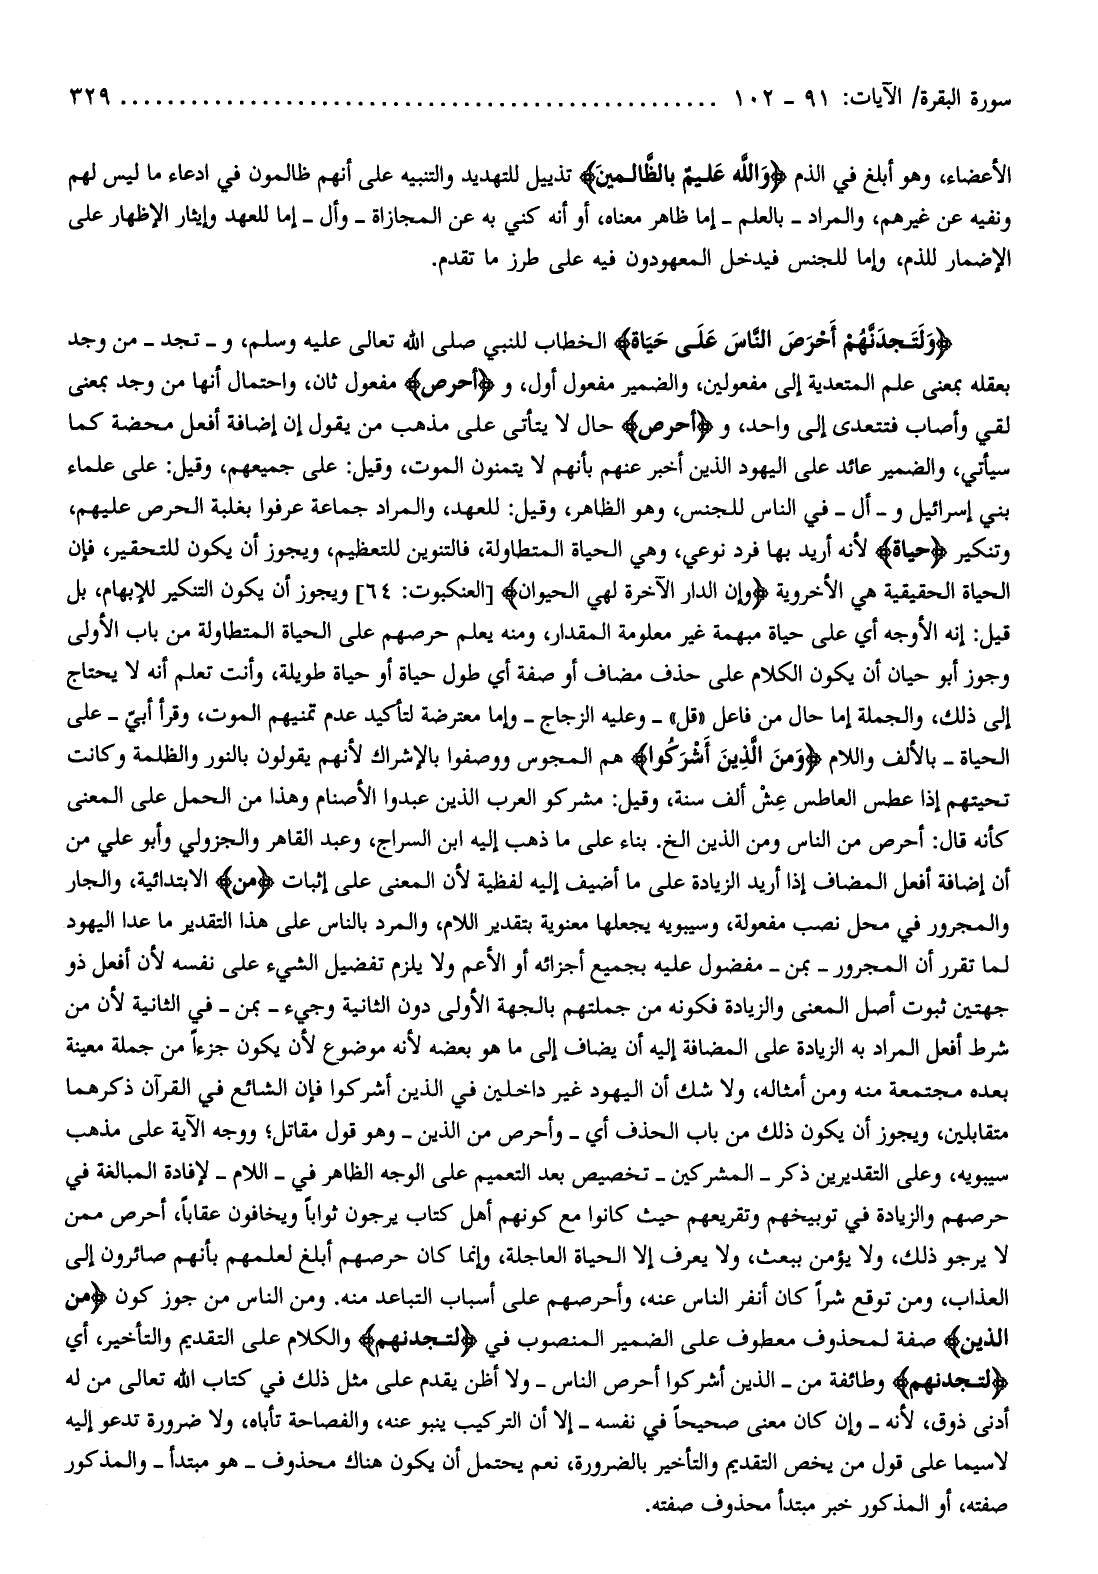 سورة البقرة/ الآيات: ٩١ - ١٠٢ .................................................. ٣٢٩
الأعضاء، وهو أبلغ في الذم ﴿وَاللَّه عَلـيمٌ بالظَّالـمينَ﴾ تذييل للتهديد والتنبيه على أنهم ظالمون في ادعاء ما ليس لهم
ونفيه عن غيرهم، والمراد ـ بالعلم ـ إما ظاهر معناه، أو أنه كني به عن المجازاة ـ وأل ـ إما للعهد وإيثار الإظهار على
الإضمار للذم، وإما للجنس فيدخل المعهودون فيه على طرز ما تقدم.
﴿وَلَتَـجدَنَّهُمْ أَحْرَصَ النَّاسَ عَلَـى حَيَاة﴾ الخطاب للنبي صلى الله تعالى عليه وسلم، و ـ تجد ـ من وجد
بعقله بمعنى علم المتعدية إلى مفعولين، والضمير مفعول أول، و ﴿أحرص﴾ مفعول ثان، واحتمال أنها من وجد بمعنى
لقي وأصاب فتتعدى إلى واحد، و ﴿أحرص﴾ حال لا يتأتى على مذهب من يقول إن إضافة أفعل محضة كما
سيأتي، والضمير عائد على اليهود الذين أخبر عنهم بأنهم لا يتمنون الموت، وقيل: على جميعهم، وقيل: على علماء
بني إسرائيل و ـ أل ـ في الناس للجنس، وهو الظاهر، وقيل: للعهد، والمراد جماعة عرفوا بغلبة الحرص عليهم،
وتنكير ﴿حياة﴾ لأنه أريد بها فرد نوعي، وهي الحياة المتطاولة، فالتنوين للتعظيم، ويجوز أن يكون للتحقير، فإن
الحياة الحقيقية هي الأخروية ﴿وإن الدار الآخرة لهي الحيوان﴾ [العنكبوت: ٦٤] ويجوز أن يكون التنكير للإبهام، بل
قيل: إنه الأوجه أي على حياة مبهمة غير معلومة المقدار، ومنه يعلم حرصهم على الحياة المتطاولة من باب الأولى
وجوز أبو حيان أن يكون الكلام على حذف مضاف أو صفة أي طول حياة أو حياة طويلة، وأنت تعلم أنه لا يحتاج
إلى ذلك، والجملة إما حال من فاعل «قل» ـ وعليه الزجاج ـ وإما معترضة لتأكيد عدم تمنيهم الموت، وقرأ أبيّ ـ على
الحياة ـ بالألف واللام ﴿وَمنَ الَّذِينَ أَشْرَكُوا﴾ هم المجوس ووصفوا بالإشراك لأنهم يقولون بالنور والظلمة وكانت
تحيتهم إذا عطس العاطس عِشْ ألف سنة، وقيل: مشركو العرب الذين عبدوا الأصنام وهذا من الحمل على المعنى
كأنه قال: أحرص من الناس ومن الذين الخ. بناء على ما ذهب إليه ابن السراج، وعبد القاهر والجزولي وأبو علي من
أن إضافة أفعل المضاف إذا أريد الزيادة على ما أضيف إليه لفظية لأن المعنى على إثبات ﴿من﴾ الابتدائية، والجار
والمجرور في محل نصب مفعولة، وسيبويه يجعلها معنوية بتقدير اللام، والمرد بالناس على هذا التقدير ما عدا اليهود
لما تقرر أن المجرور ـ بمن ـ مفضول عليه بجميع أجزائه أو الأعم ولا يلزم تفضيل الشيء على نفسه لأن أفعل ذو
جهتين ثبوت أصل المعنى والزيادة فكونه من جملتهم بالجهة الأولى دون الثانية وجيء ـ بمن ـ في الثانية لأن من
شرط أفعل المراد به الزيادة على المضافة إليه أن يضاف إلى ما هو بعضه لأنه موضوع لأن يكون جزءاً من جملة معينة
بعده مجتمعة منه ومن أمثاله، ولا شك أن اليهود غير داخلين في الذين أشركوا فإن الشائع في القرآن ذكرهما
متقابلين، ويجوز أن يكون ذلك من باب الحذف أي ـ وأحرص من الذين ـ وهو قول مقاتل؛ ووجه الآية على مذهب
سيبويه، وعلى التقديرين ذكر ـ المشركين ـ تخصيص بعد التعميم على الوجه الظاهر في ـ اللام ـ لإفادة المبالغة في
حرصهم والزيادة في توبيخهم وتقريعهم حيث كانوا مع كونهم أهل كتاب يرجون ثواباً ويخافون عقاباً، أحرص ممن
لا يرجو ذلك، ولا يؤمن ببعث، ولا يعرف إلا الحياة العاجلة، وإنما كان حرصهم أبلغ لعلمهم بأنهم صائرون إلى
العذاب، ومن توقع شراً كان أنفر الناس عنه، وأحرصهم على أسباب التباعد منه. ومن الناس من جوز كون ﴿من
الذين﴾ صفة لمحذوف معطوف على الضمير المنصوب في ﴿لتـجدنهم﴾ والكلام على التقديم والتأخير، أي
﴿لتـجدنهم﴾ وطائفة من ـ الذين أشركوا أحرص الناس ـ ولا أظن يقدم على مثل ذلك في كتاب الله تعالى من له
أدنى ذوق، لأنه ـ وإن كان معنى صحيحاً في نفسه ـ إلا أن التركيب ينبو عنه، والفصاحة تأباه، ولا ضرورة تدعو إليه
لاسيما على قول من يخص التقديم والتأخير بالضرورة، نعم يحتمل أن يكون هناك محذوف ـ هو مبتدأ ـ والمذكور
صفته، أو المذكور خبر مبتدأ محذوف صفته.